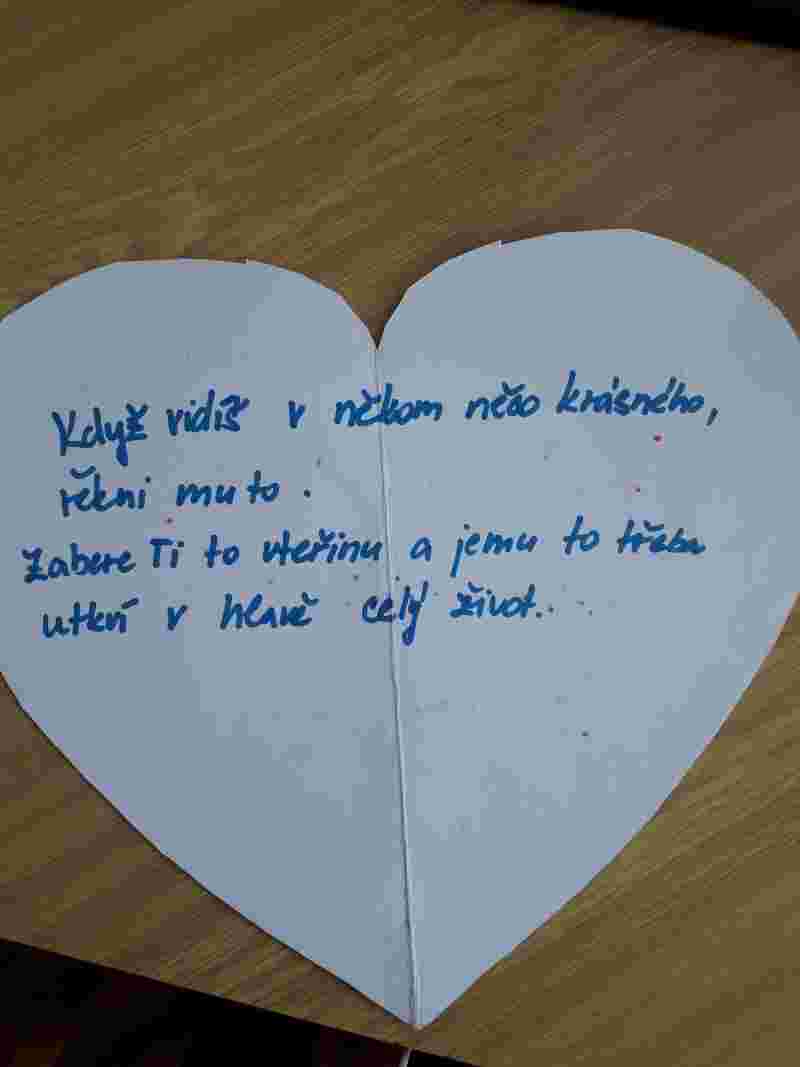 Když vidíš v někom něco krásného,
řekni mu to.
Zabere Ti to vteřinu a jemu to třeba
utkví v hlavě celý život..